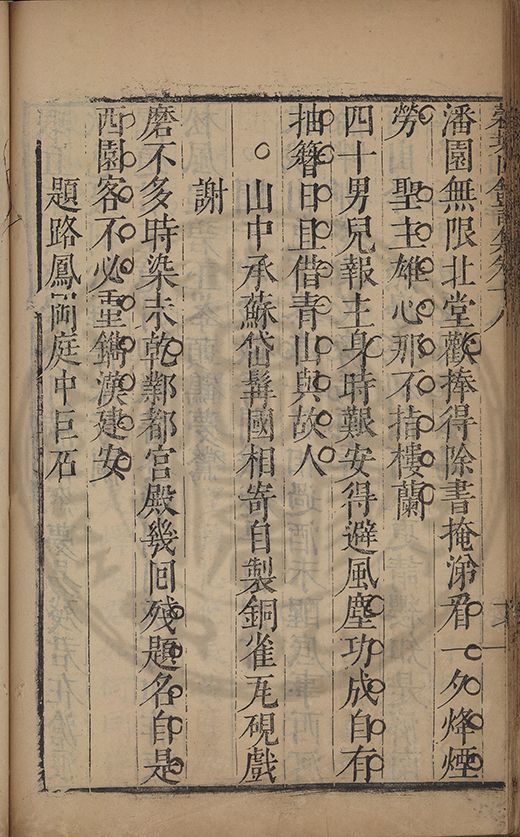 潘園無限北堂歡捧得除書掩涕看一夕烽煙
勞　聖主雄心那不指樓蘭
四十男兒報主身時艱安得避風塵功成自有
抽簪日且借青山與故人
○山中承蘇岱髯國相寄自製銅雀瓦硯戲
謝
磨不多時染未乾鄴都宮殿幾回殘題名自是
西園客不必重鐫漢建安
題路鳳岡庭中巨石